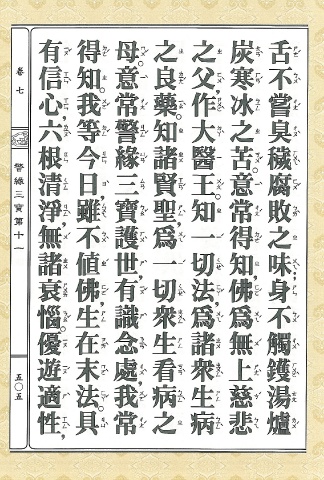 舌不嘗臭穢腐敗之味,身不觸鑊湯爐
炭寒冰之苦。意常得知佛為無上慈悲
之父,作大醫王。知一切法,為諸眾生病
之良藥。知諸賢聖,為一切眾生看病之
母。意常警緣三寶護世,有識念處。我常
得知,我等今日,雖不值佛生在末法,具
有信心,六根清淨,無諸衰惱。優遊適性,
卷七
警緣三寶第十一
五〇五